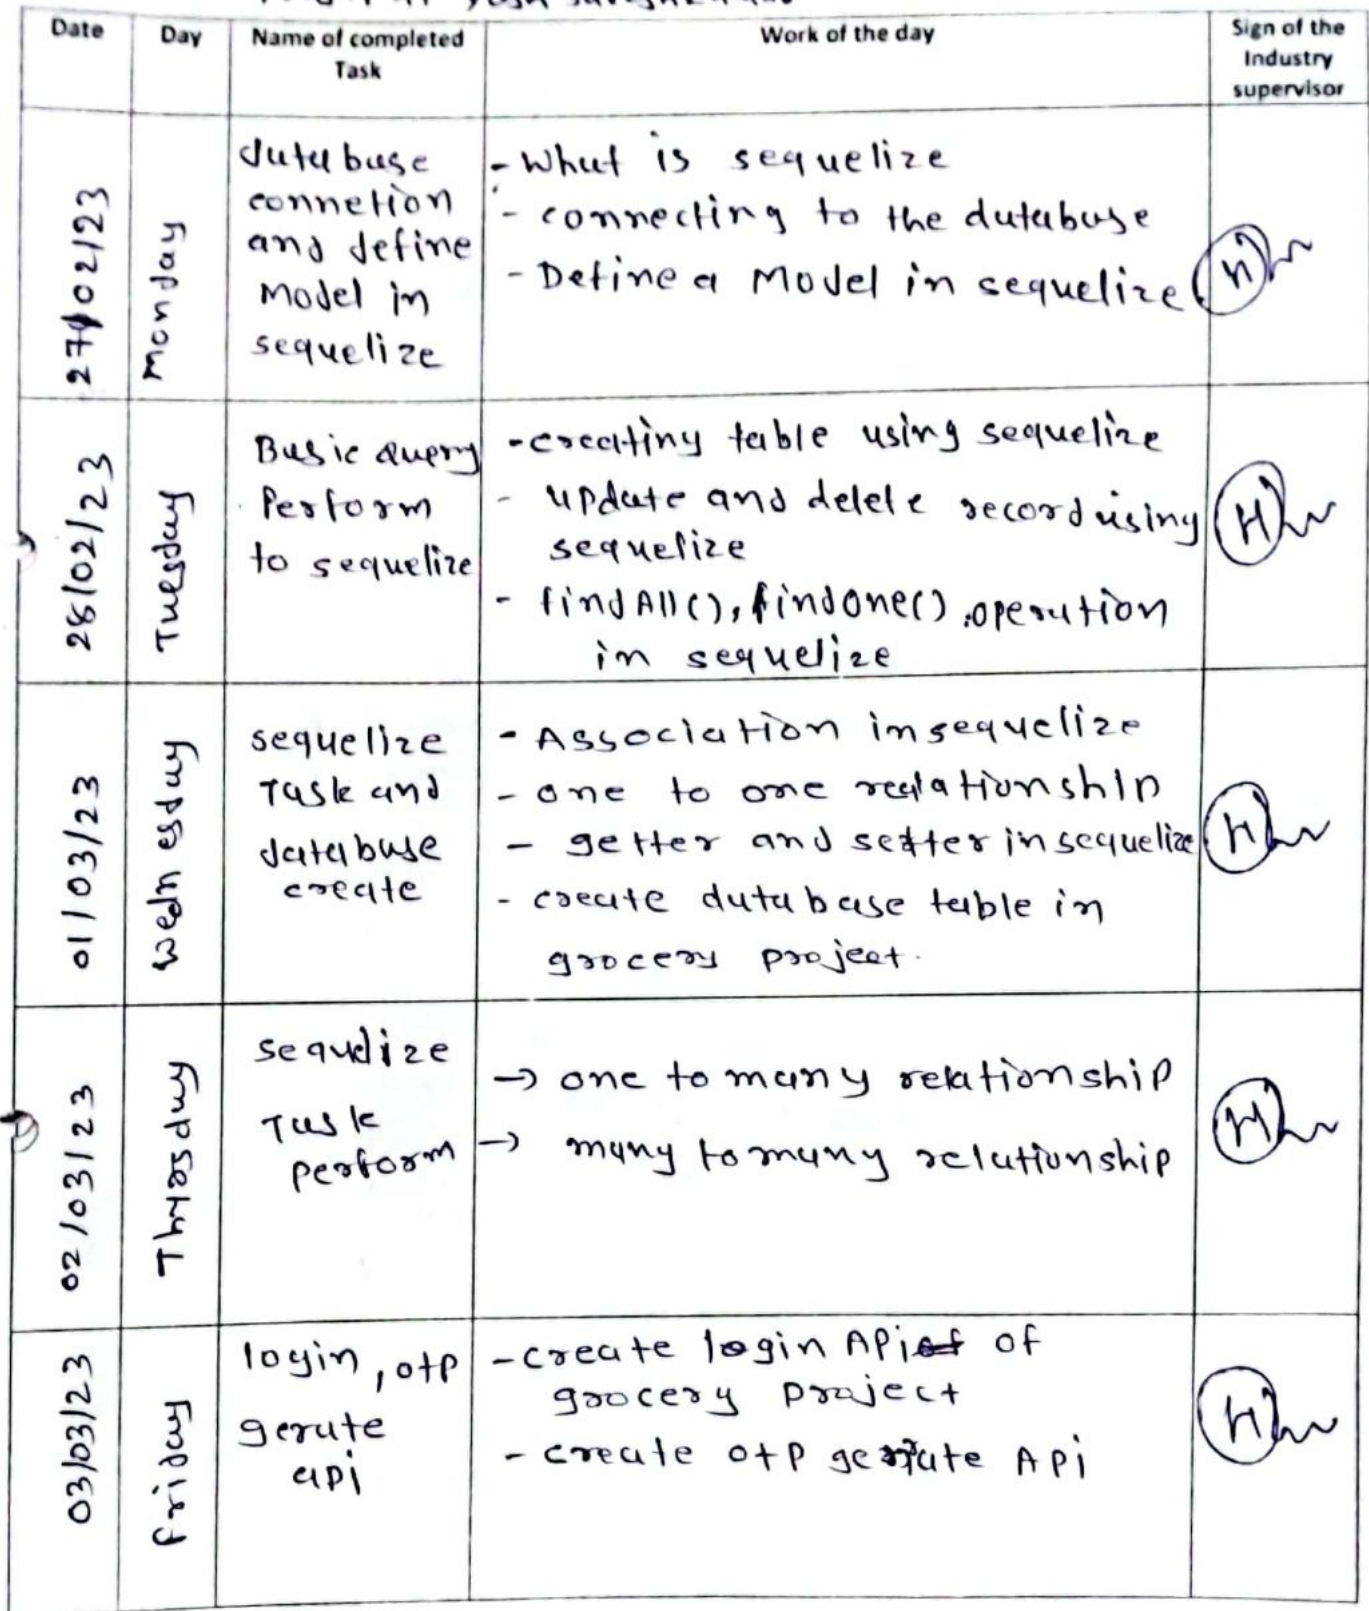 Date Day Name of completed Task Work of the day Sign of the Industry supervisor
27/02/23
Monday
database
connetion
and define
Model in
sequelize
- What is sequelize
- connecting to the database
- Define a Model in sequelize
28/02/23
Tuesday
Basic query
Perform
to sequelize
- creating table using sequelize
- update and delete record using
sequelize
- findAll(), findone() operation
in sequelize
01/03/23
wednesday
sequelize
Task and
database
create
- Association in sequelize
- one to one relationship
- getter and setter in sequelize
- create database table in
grocery project.
02/03/23
Thursday
sequelize
Task
perform
→ one to many relationship
→ many to many relationship
03/03/23
friday
login, otp
gerate
api
- create login APi of
grocery project
- create otp gerate Api